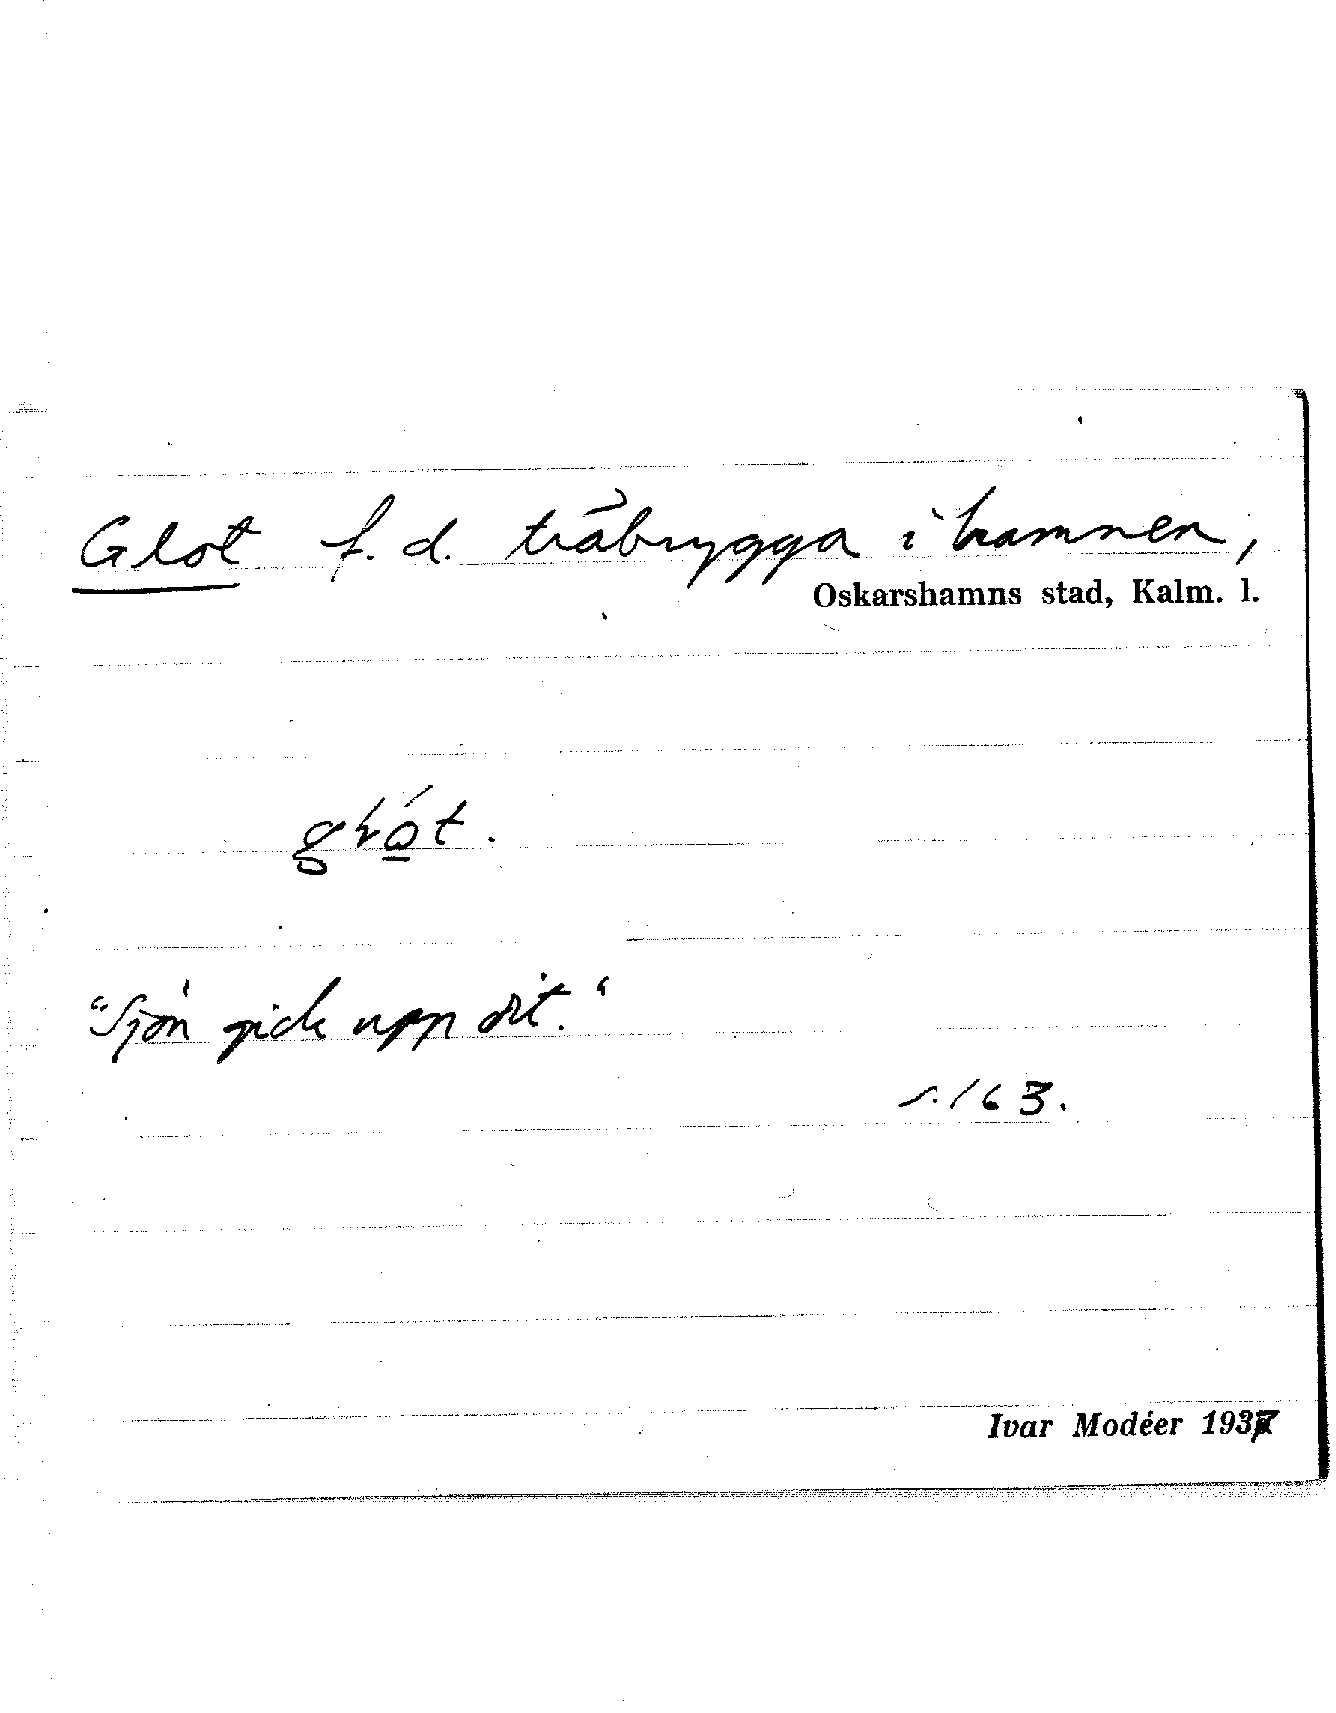 Glot f. d. träbrygga i hamnen,
Oskarshamns stad, Kalm. l.
"Sjön gick upp dit."
s. 163.
Ivar Modéer 1937